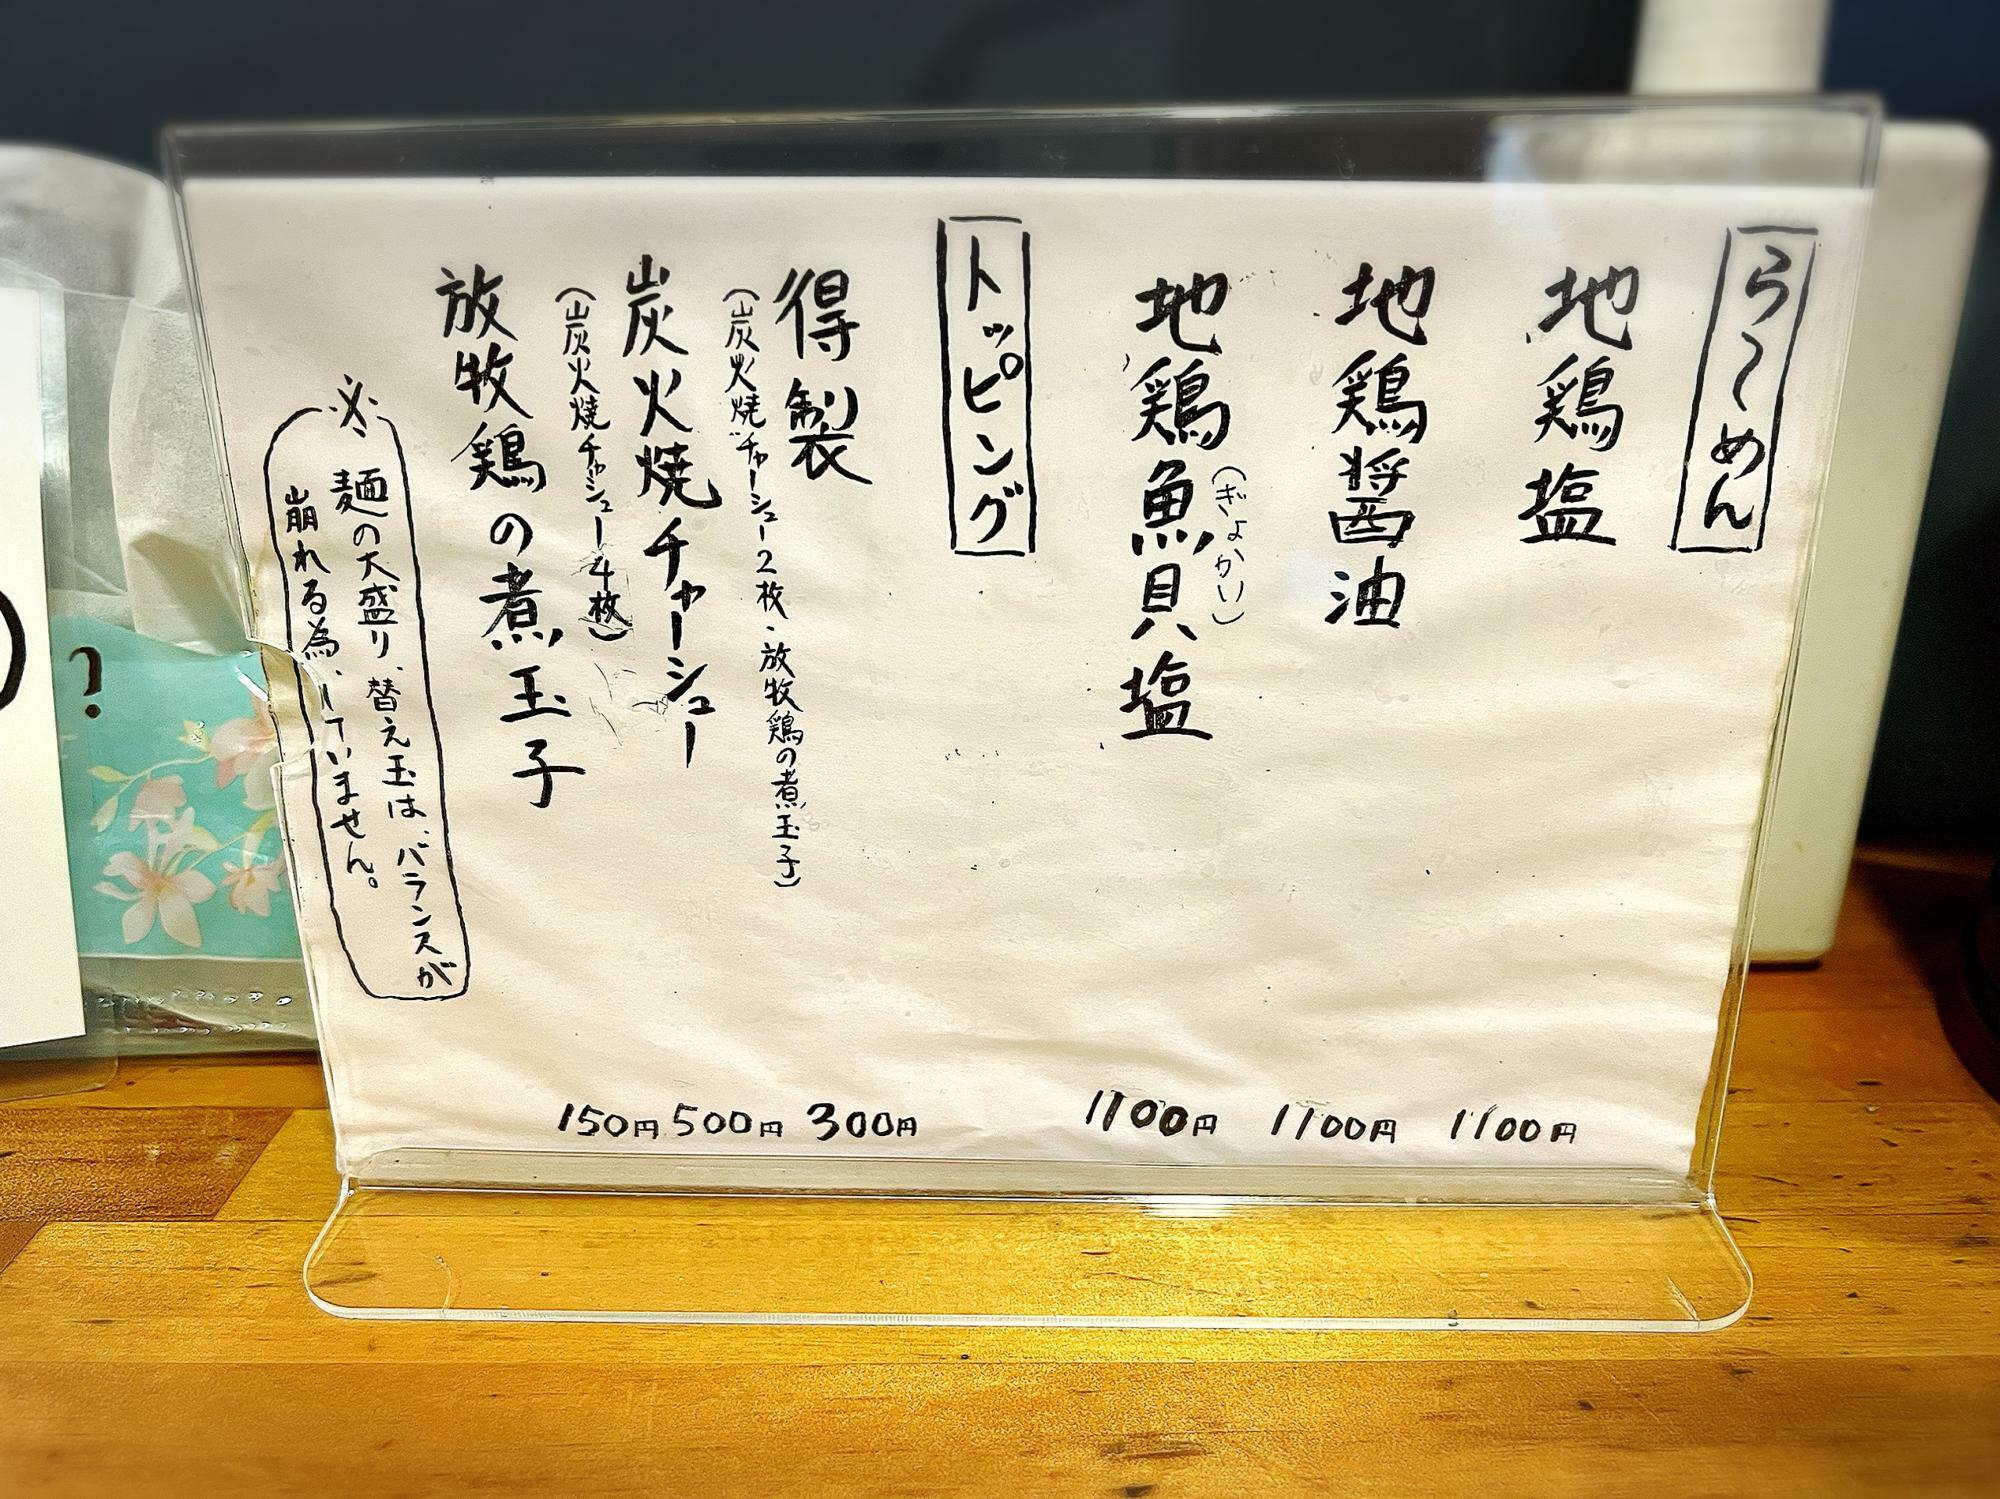 らーめん
地鶏塩
1100円
地鶏醤油
1100円
地鶏魚貝塩
(ぎょかい)
1100円
トッピング
得製
(炭火焼チャーシュー2枚、放牧鶏の煮玉子)
300円
炭火焼チャーシュー
(炭火焼チャーシュー4枚)
500円
放牧鶏の煮玉子
150円
※
麺の大盛り、替え玉は、バランスが
崩れる為、していません。
?